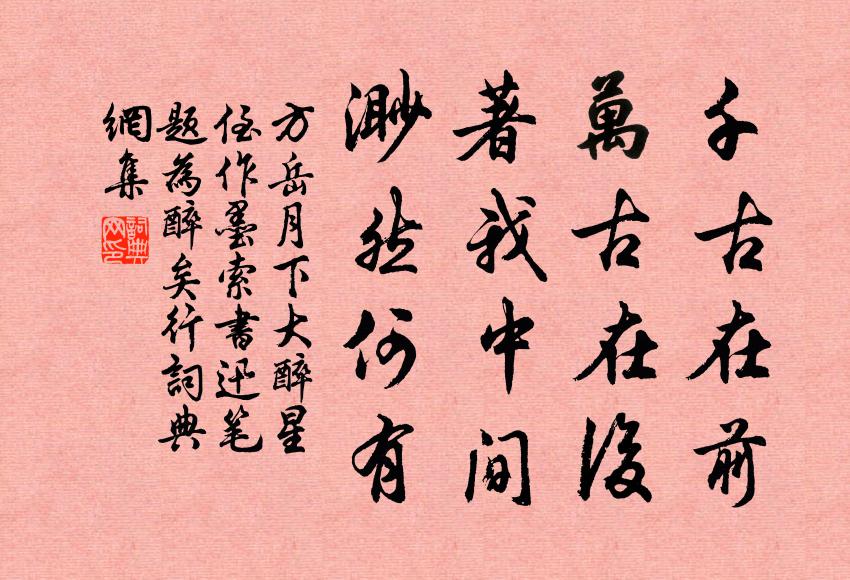 千古在前
萬古在後
著我中間
渺然何有
方岳月下大醉星
侄作墨索書迅笔
題為醉矣行詞典
網集
詞典
网印